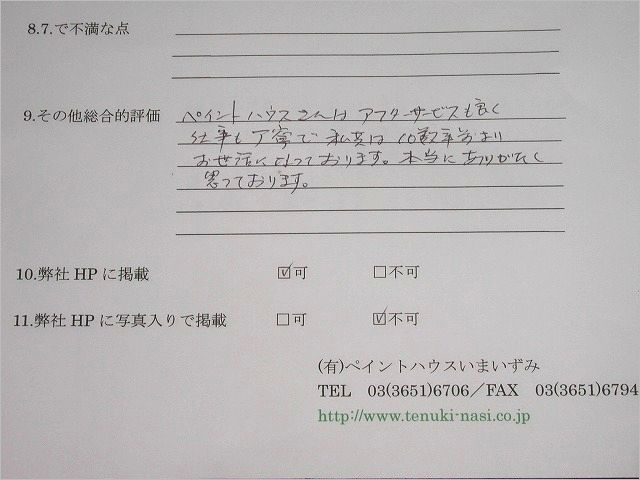 8.7.で不満な点
9.その他総合的評価 ペイントハウスさんは アフターサービスも良く
仕事も丁寧で 私共は 10数年前より
お世話になっております。本当にありがたく
思っております。
10.弊社 HP に掲載 ☑可 □不可
11.弊社 HP に写真入りで掲載 □可 ☑不可
(有)ペイントハウスいまいずみ
TEL 03(3651)6706／FAX 03(3651)6794
http://www.tenuki-nasi.co.jp